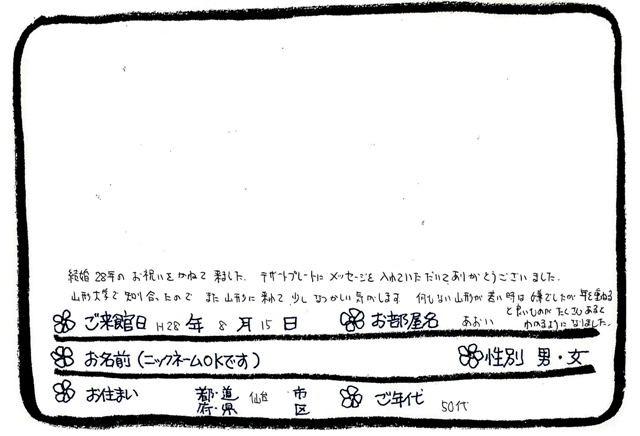 結婚28年のお祝いをかねて来ました。デザートプレートにメッセージを入れていただいてありがとうございました。
山形大学で知り合ったので また山形に来れて少しなつかしい気がします 何もない山形が若い時は嫌でしたが年を重ねる
と良いものがたくさんあると
わかるようになりました。
ご来館日 H28年 8月 15日 お部屋名 あおい
お名前(ニックネームOKです) 性別 男・女
お住まい 都・道 府・県 仙台 市 区 ご年代 50代